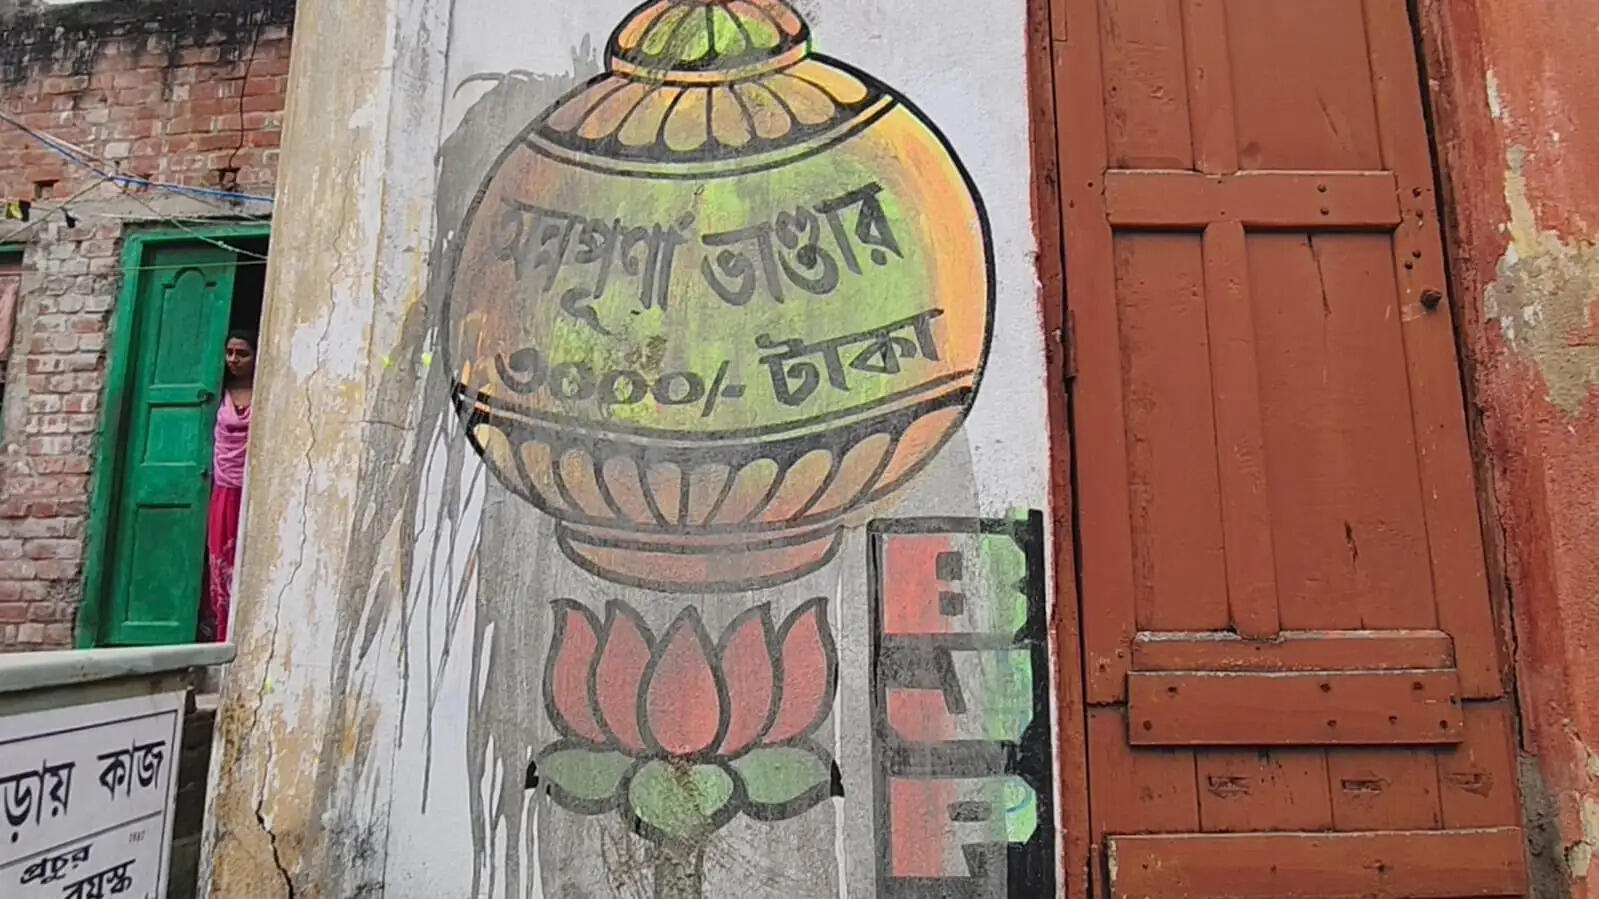 অন্নপূর্ণা ভাণ্ডার
৩০০০/- টাকা
BJP
ড়ায় কাজ
1982
প্রচুর
বয়স্ক